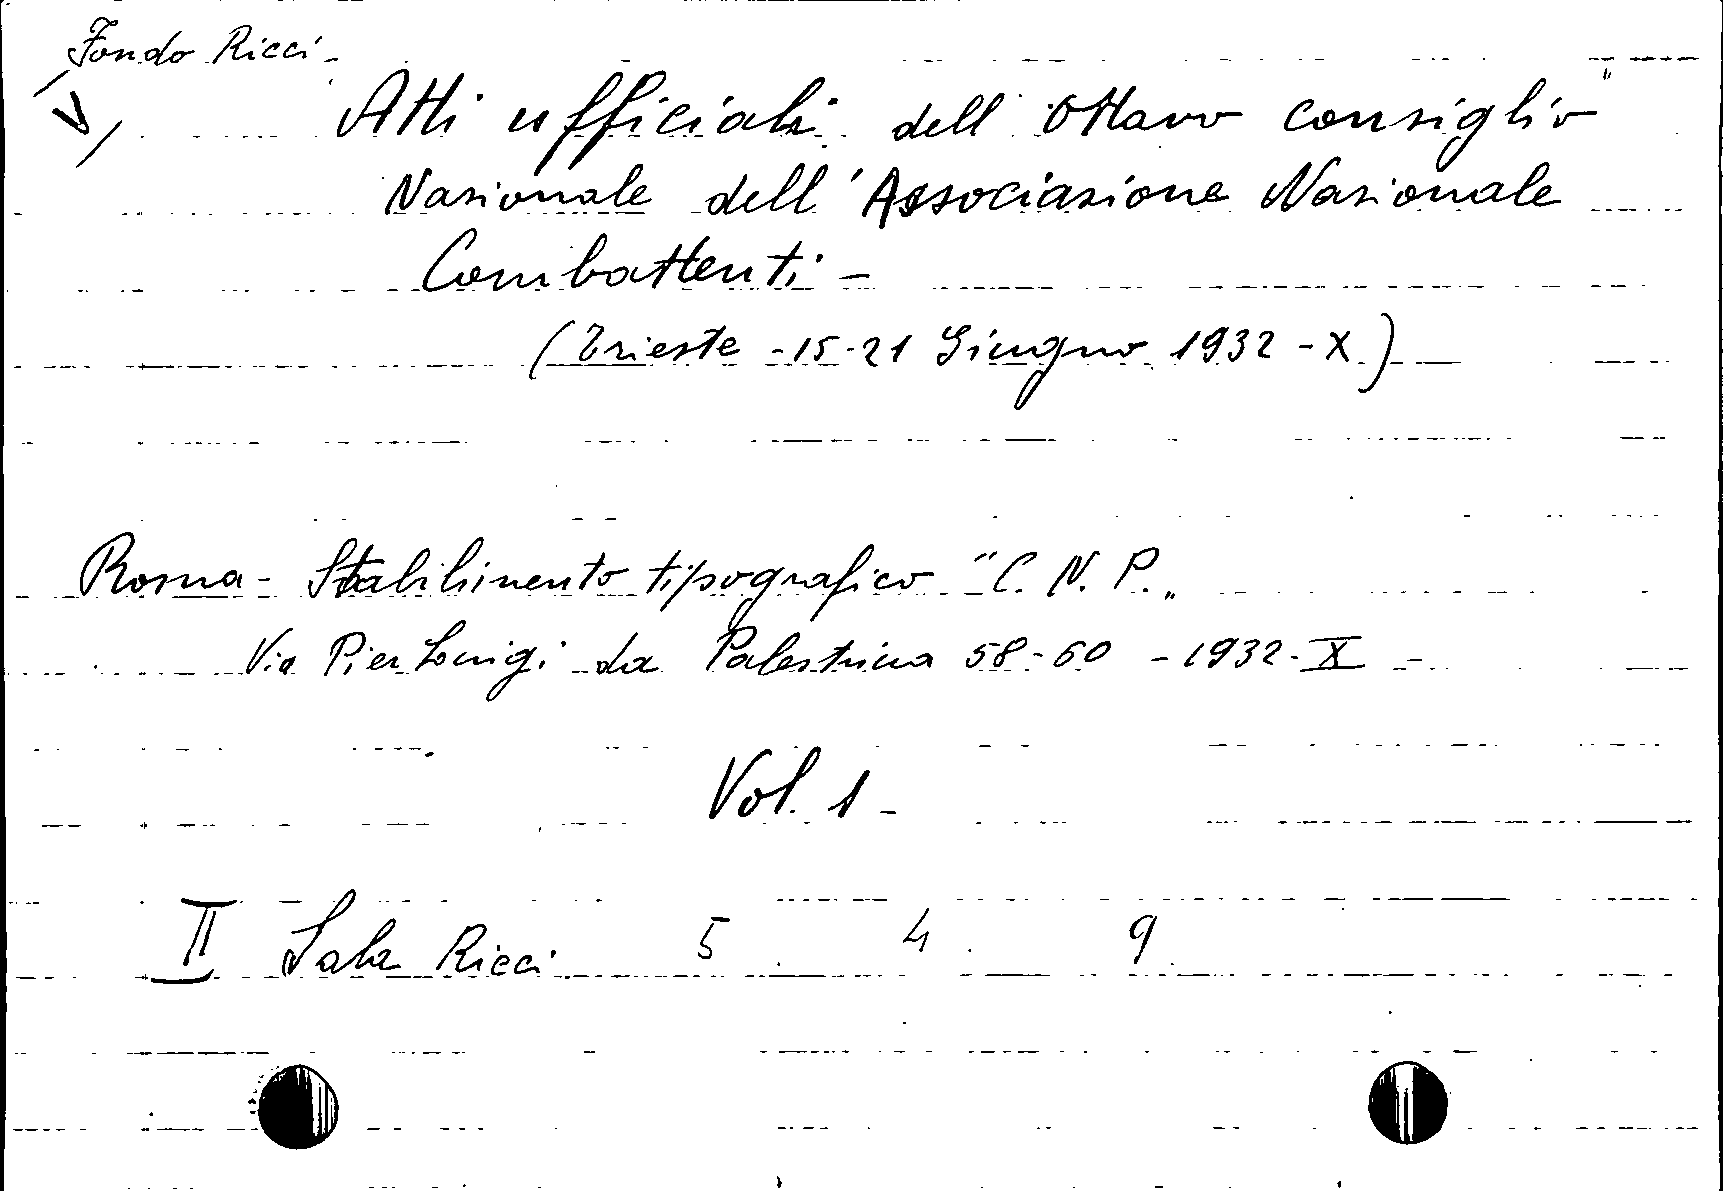 Fondo Ricci -
V
Atti ufficiali dell'ottavo consiglio
Nazionale dell'Associazione Nazionale
Combattenti -
(Trieste -15-21 Giugno 1932 - X)
Roma - Stabilimento tipografico "C. N. P."
Via Pier Luigi da Palestrina 58-60 - 1932 - X -
Vol. 1 -
II Sala Ricci 5 4 9